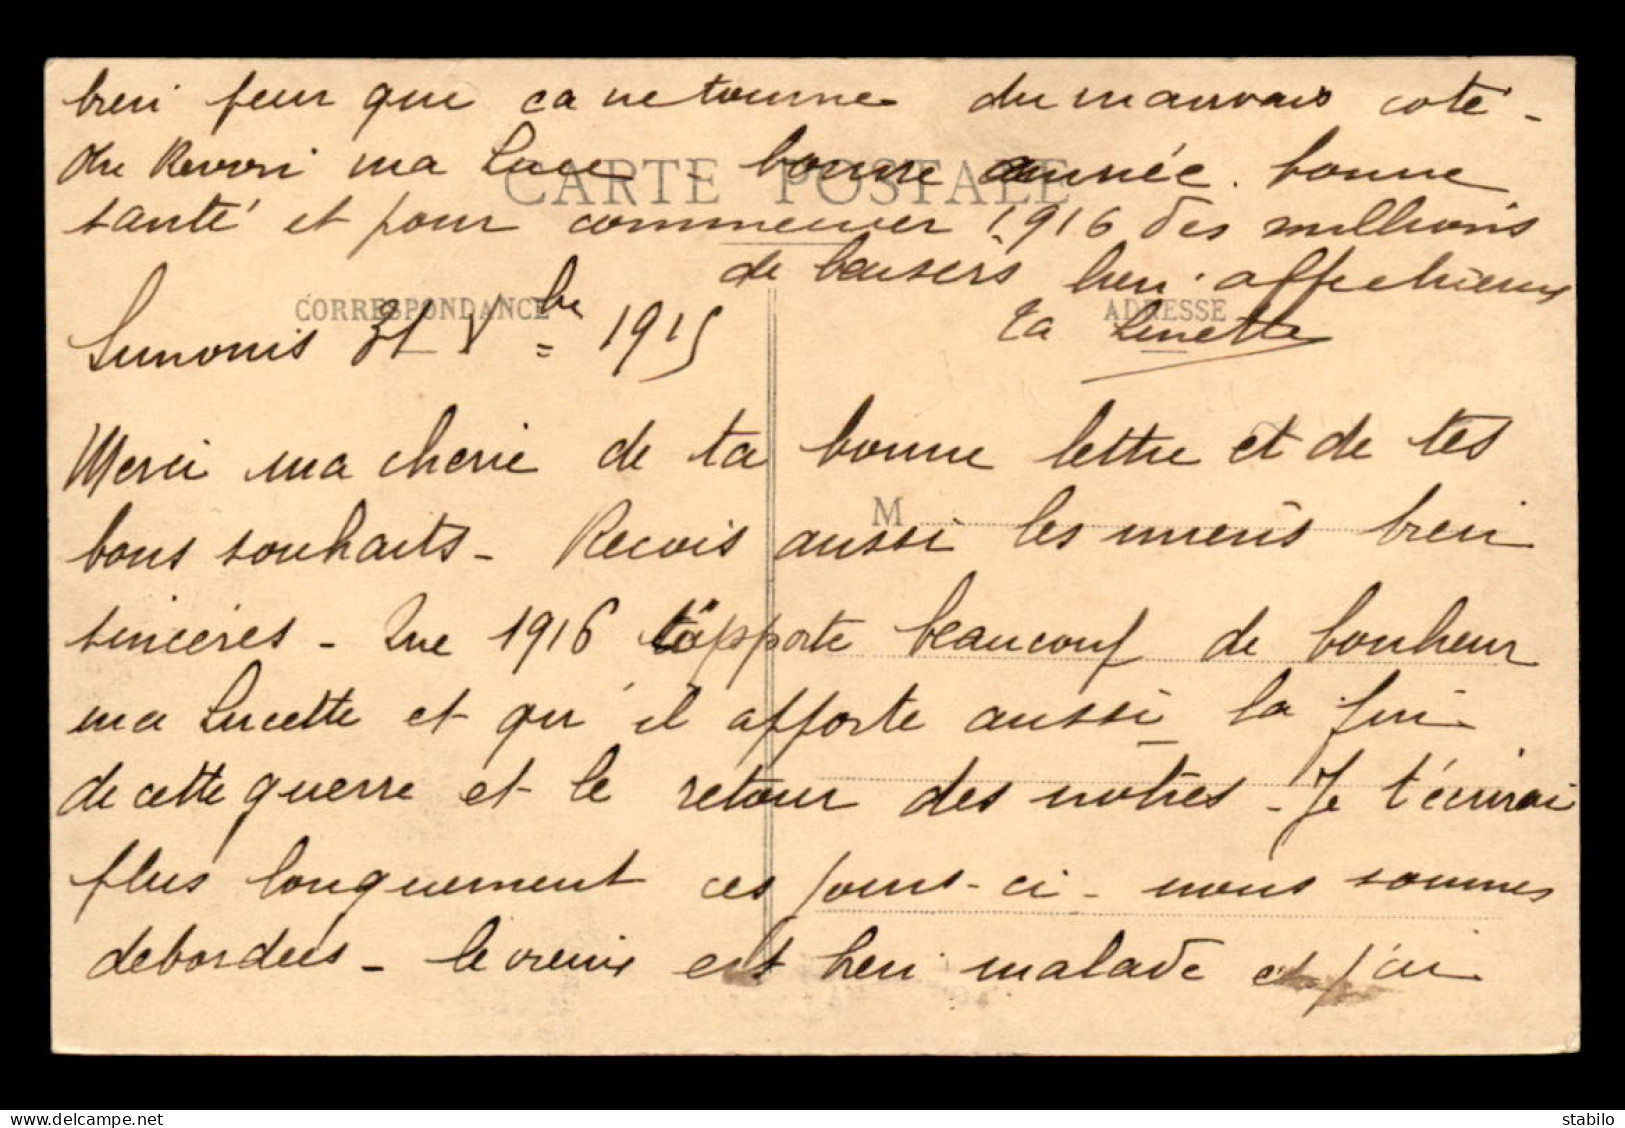 bien peur que ça ne tourne du mauvais côté -
Au Revoir ma Luce - bonne année. bonne
CARTE POSTALE
santé et pour commencer 1916 des millions
de baisers bien affectueux
CORRESPONDANCE
ADRESSE
31 Xbre 1915
ta Linette
Merci ma cherie de ta bonne lettre et de tes
M
bons souhaits - Recois aussi les miens bien
sincères - Que 1916 t'apporte beaucoup de bonheur
ma Lucette et qu'il apporte aussi la fin
de cette guerre et le retour des notres - Je t'écrirai
plus longuement ces jours-ci - nous sommes
debordées - le vieux est bien malade et j'ai
stabilo